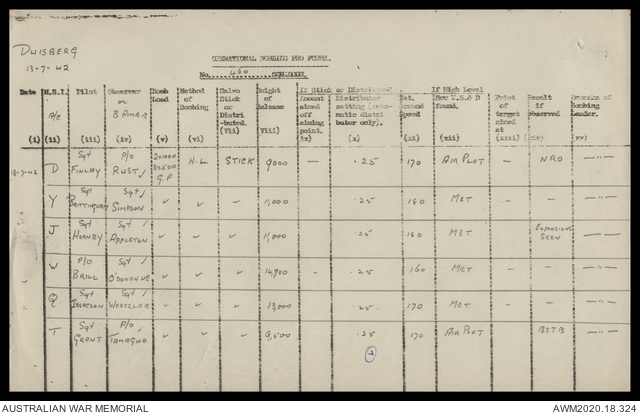 DUISBERG
13-7-42
OPERATIONAL BOMBING PRO FORMA.
No. 460 SQUADRON.
Date (i)
M.S.I. A/C (ii)
Pilot (iii)
Observer or B AIMER (iv)
Bomb Load (v)
Method of Bombing (vi)
Salvo Stick or Distributed. (Vii)
Height of Release (Viii)
If Stick or Distributed
Amount aimed off aiming point. ix)
Distributor setting (automatic distributor only). (x)
Est. Ground Speed (xi)
If High Level
How U.S & D found. (xii)
Point of target aimed at (xiii)
Result if observed
Remarks of Bombing Leader. (xv)
13-7-42 D Sgt FINLAY P/O RUST G.P H.L. STICK 9000 — .25 170 AIR PLOT — NRO —"—
Y Sgt Sgt SIMPSON 11,000 .25 180 MET — —"—
J Sgt HORNBY Sgt APPLETON 11,000 .25 180 MET EXPLOSIONS SEEN —"—
W P/O BRILL Sgt O'DONAHUE 14,900 .25 160 MET — — —"—
Q Sgt Sgt 13,000 .25 170 MET — — —"—
T Sgt GRANT P/O TAMAGNO 9,500 .25 170 AIR PLOT BSTB —"—
AUSTRALIAN WAR MEMORIAL
AWM2020.18.324